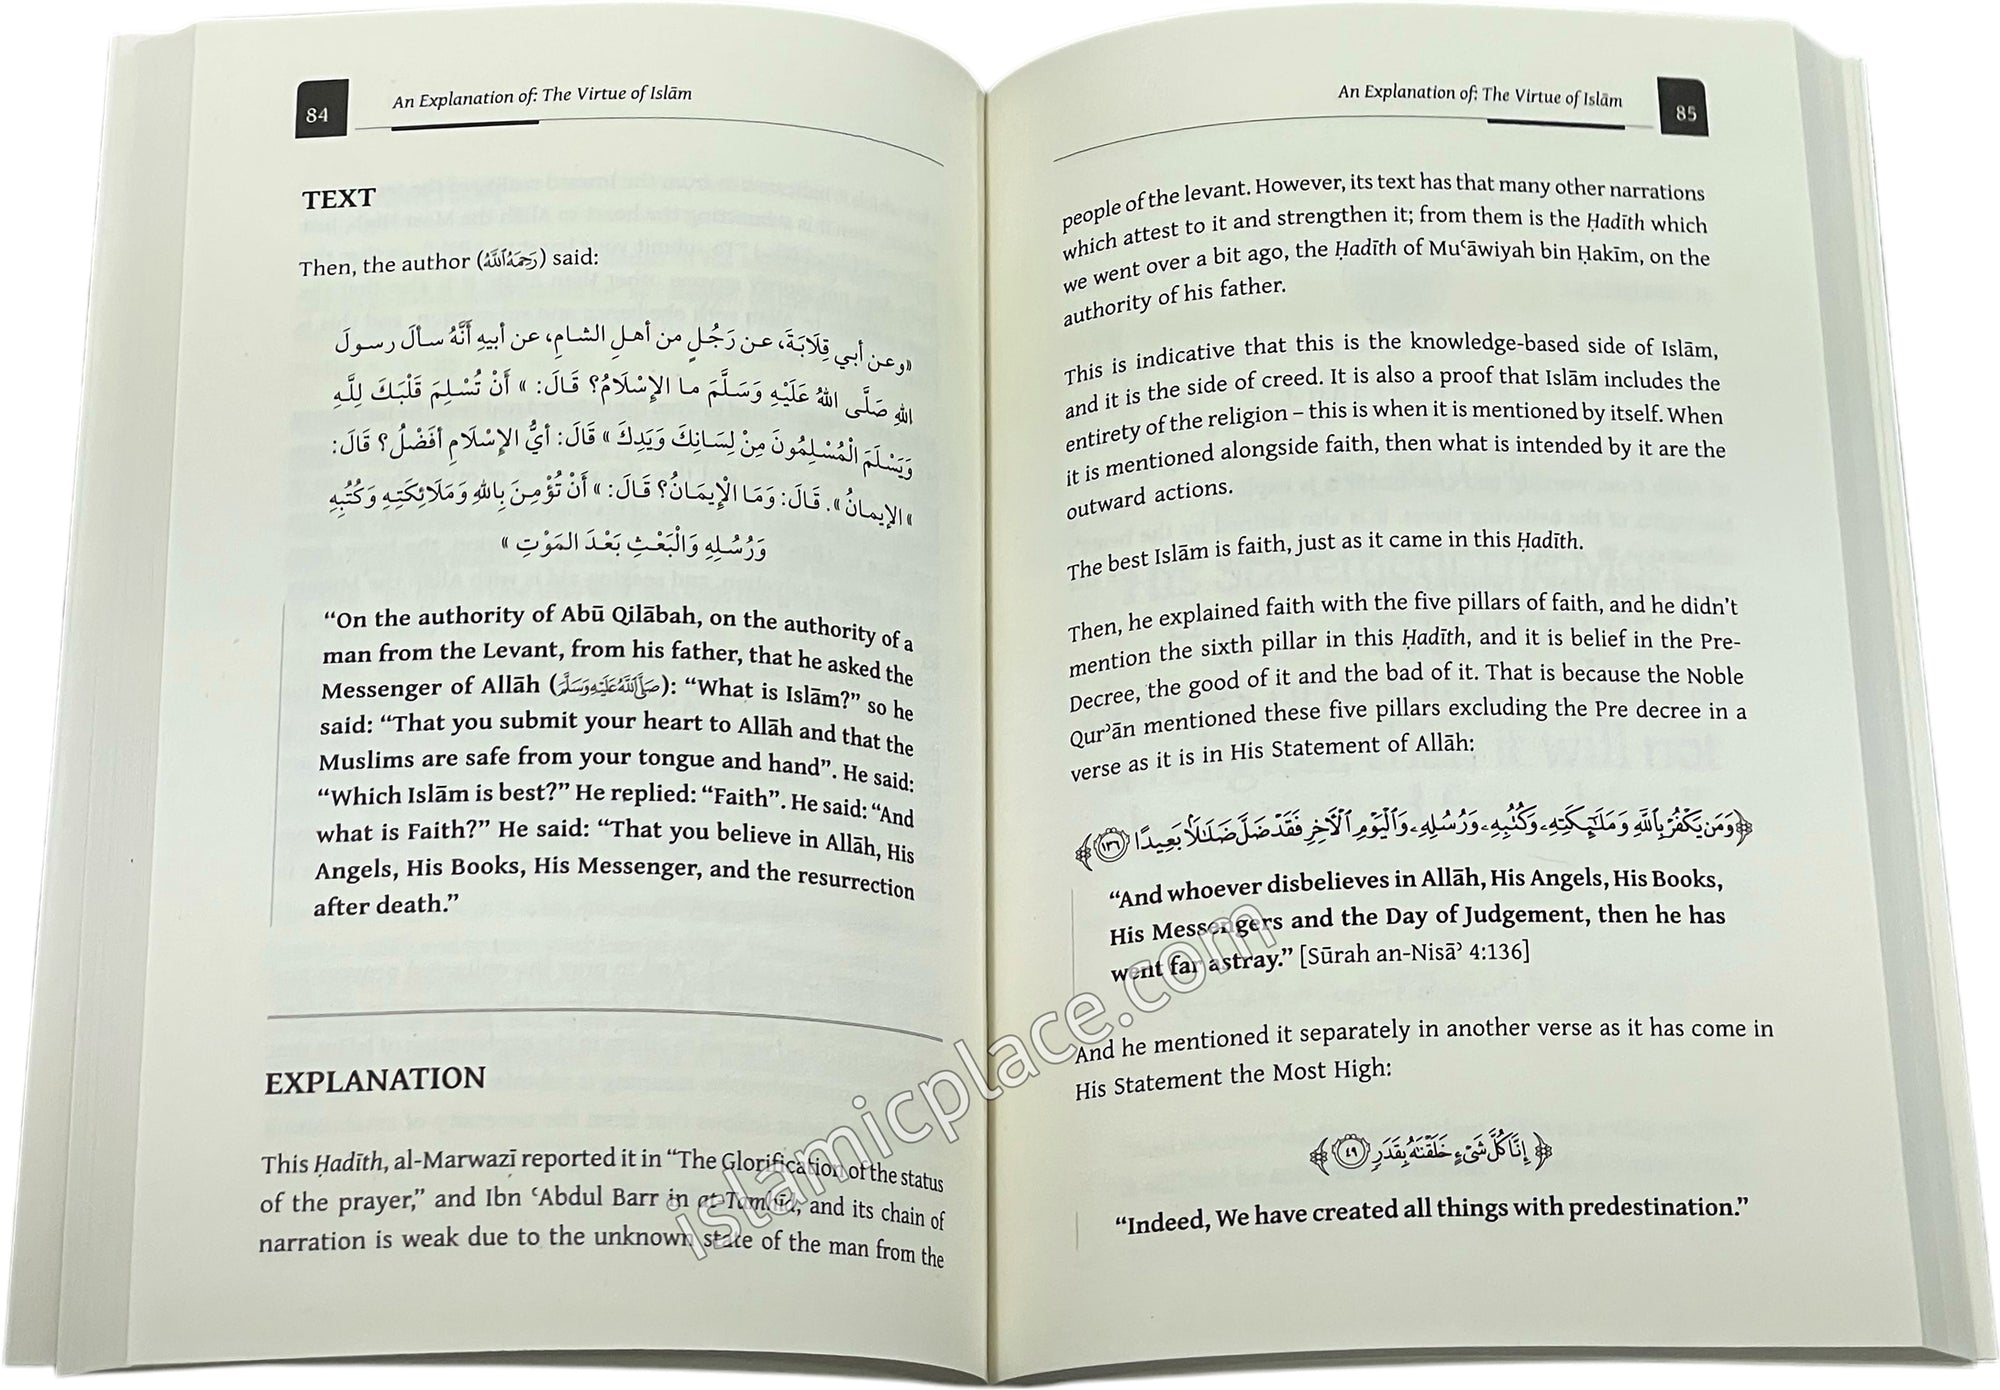 84
An Explanation of: The Virtue of Islām
TEXT
Then, the author (رَحِمَهُ ٱللَّهُ) said:
«وعن أبي قِلَابَةَ، عن رَجُلٍ من أهلِ الشامِ، عن أبيهِ أَنَّهُ سألَ رسولَ
اللهِ صَلَّى اللهُ عَلَيْهِ وَسَلَّمَ ما الإِسْلَامُ؟ قَالَ: » أَنْ تُسْلِمَ قَلْبَكَ لِلَّهِ
وَيَسْلَمَ الْمُسْلِمُونَ مِنْ لِسَانِكَ وَيَدِكَ » قَالَ: أيُّ الإِسْلَامِ أفضْلُ؟ قَالَ:
» الإيمانُ ». قَالَ: وَمَا الْإِيمَانُ؟ قَالَ: » أَنْ تُؤْمِنَ بِاللهِ وَمَلَائِكَتِهِ وَكُتُبِهِ
وَرُسُلِهِ وَالْبَعْثِ بَعْدَ المَوْتِ »
“On the authority of Abū Qilābah, on the authority of a
man from the Levant, from his father, that he asked the
Messenger of Allāh (صَلَّى ٱللَّهُ عَلَيْهِ وَسَلَّمَ): “What is Islām?” so he
said: “That you submit your heart to Allāh and that the
Muslims are safe from your tongue and hand”. He said:
“Which Islām is best?” He replied: “Faith”. He said: “And
what is Faith?” He said: “That you believe in Allāh, His
Angels, His Books, His Messenger, and the resurrection
after death.”
EXPLANATION
This Ḥadīth, al-Marwazī reported it in “The Glorification of the status
of the prayer,” and Ibn ʿAbdul Barr in at-Tamhīd, and its chain of
narration is weak due to the unknown state of the man from the
An Explanation of: The Virtue of Islām
85
people of the levant. However, its text has that many other narrations
which attest to it and strengthen it; from them is the Ḥadīth which
we went over a bit ago, the Ḥadīth of Muʿāwiyah bin Ḥakīm, on the
authority of his father.
This is indicative that this is the knowledge-based side of Islām,
and it is the side of creed. It is also a proof that Islām includes the
entirety of the religion – this is when it is mentioned by itself. When
it is mentioned alongside faith, then what is intended by it are the
outward actions.
The best Islām is faith, just as it came in this Ḥadīth.
Then, he explained faith with the five pillars of faith, and he didn’t
mention the sixth pillar in this Ḥadīth, and it is belief in the Pre-
Decree, the good of it and the bad of it. That is because the Noble
Qurʾān mentioned these five pillars excluding the Pre decree in a
verse as it is in His Statement of Allāh:
﴿وَمَن يَكْفُرْ بِٱللَّهِ وَمَلَـٰٓئِكَتِهِۦ وَكُتُبِهِۦ وَرُسُلِهِۦ وَٱلْيَوْمِ ٱلْـَٔاخِرِ فَقَدْ ضَلَّ ضَلَـٰلًۢا بَعِيدًا ١٣٦﴾
“And whoever disbelieves in Allāh, His Angels, His Books,
His Messengers and the Day of Judgement, then he has
went far astray.” [Sūrah an-Nisāʾ 4:136]
And he mentioned it separately in another verse as it has come in
His Statement the Most High:
﴿إِنَّا كُلَّ شَىْءٍ خَلَقْنَـٰهُ بِقَدَرٍ ٤٩﴾
“Indeed, We have created all things with predestination.”
islamicplace.com